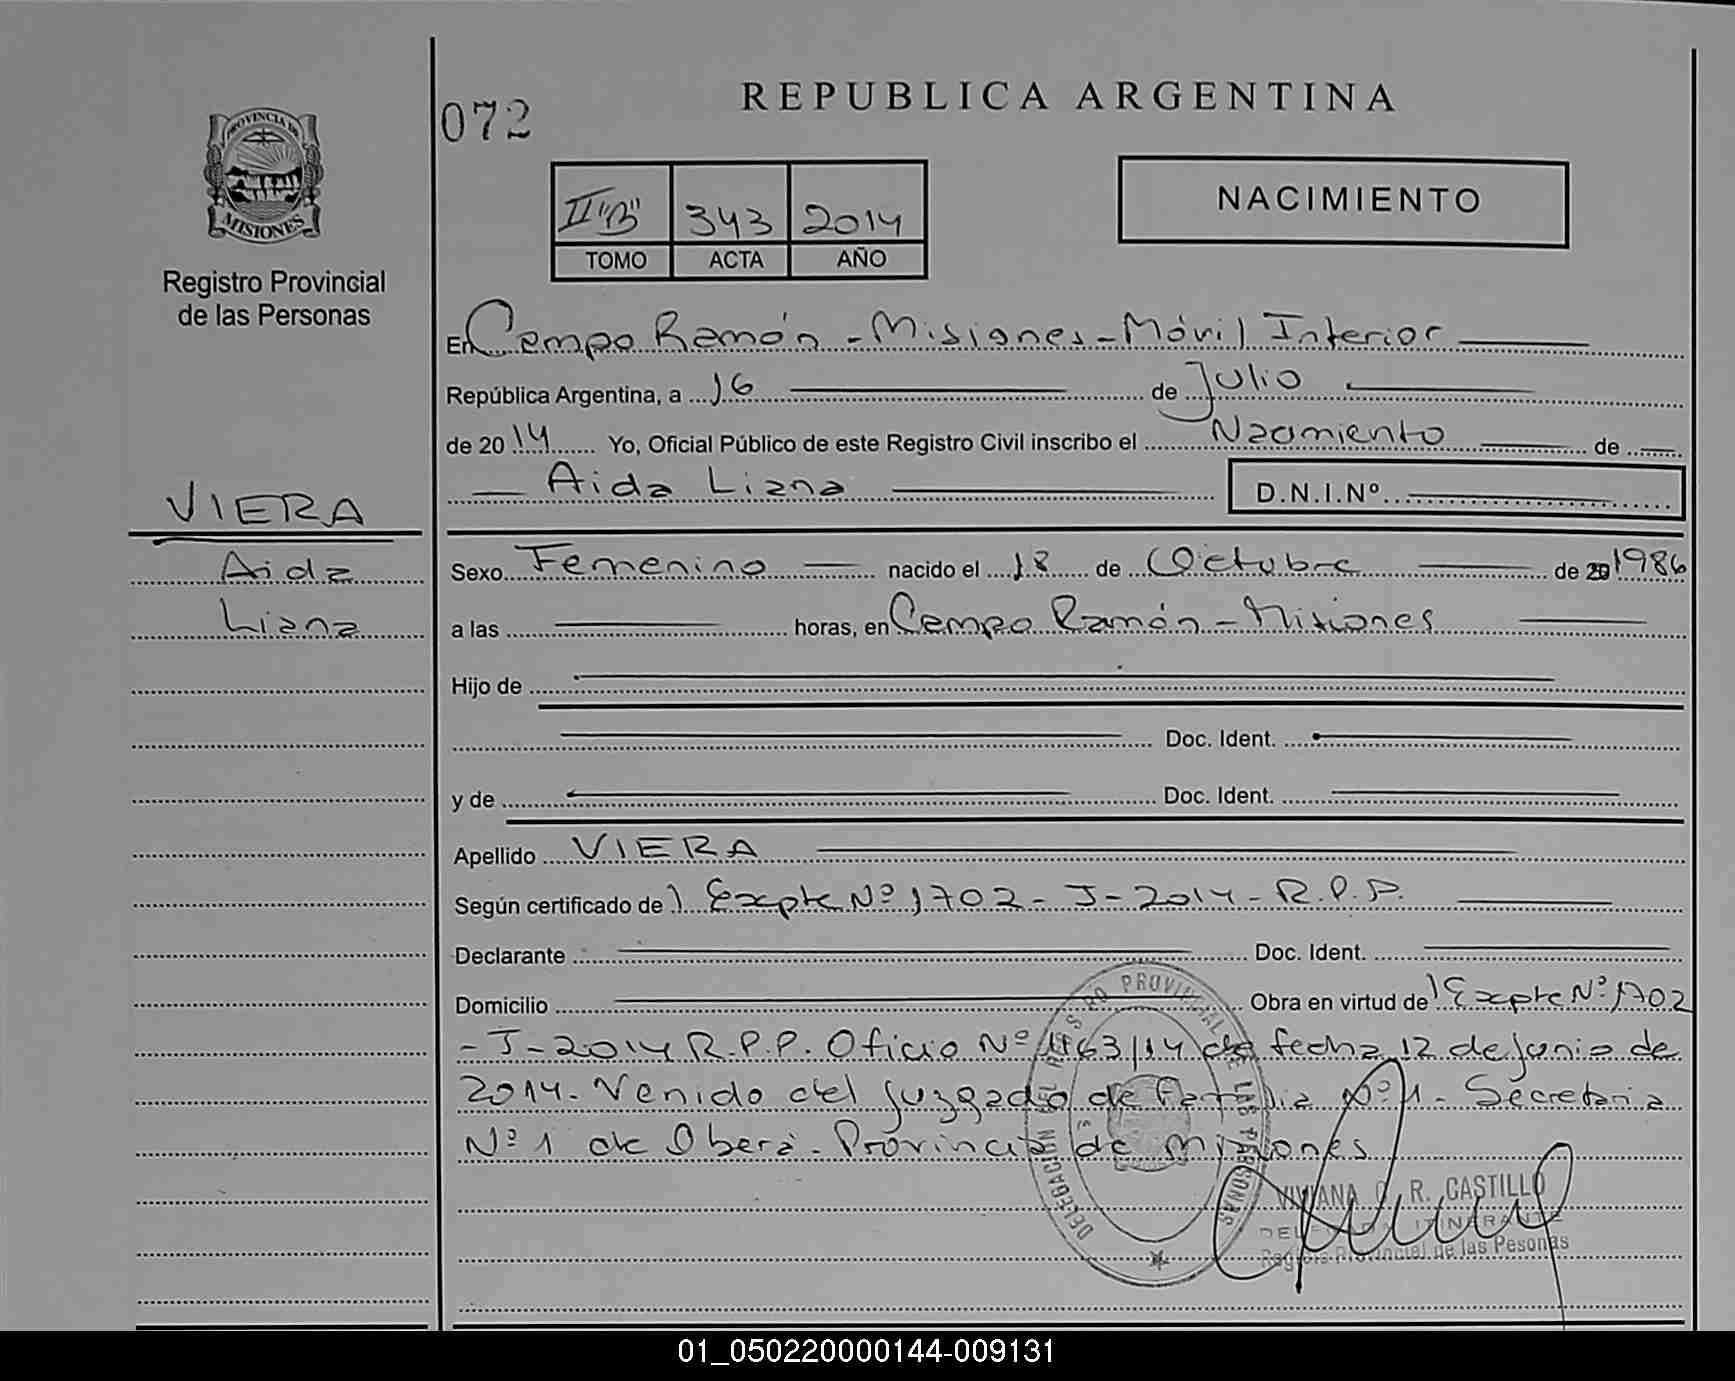 PROVINCIA DE
MISIONES
Registro Provincial
de las Personas
VIERA
Aida
Liana
072
REPUBLICA ARGENTINA
II "B" 343 2014
TOMO ACTA AÑO
NACIMIENTO
En Campo Ramón - Misiones - Móvil Interior
República Argentina, a 16 de Julio
de 2014 Yo, Oficial Público de este Registro Civil inscribo el Nacimiento de
Aida Liana D.N.I.Nº
Sexo Femenino nacido el 18 de Octubre de 1986
a las horas, en Campo Ramón - Misiones
Hijo de
Doc. Ident.
y de Doc. Ident.
Apellido VIERA
Según certificado de Expte Nº 1702 - J - 2014 - R.P.P.
Declarante Doc. Ident.
Domicilio Obra en virtud de Expte Nº 1702
- J - 2014 R.P.P. Oficio Nº 1163/14 de fecha 12 de junio de
2014. Venido del Juzgado de Familia Nº 1 - Secretaria
Nº 1 de Oberá - Provincia de Misiones
VIVIANA R. CASTILLO
ITINERANTE
Registro Provincial de las Pesonas
01_050220000144-009131